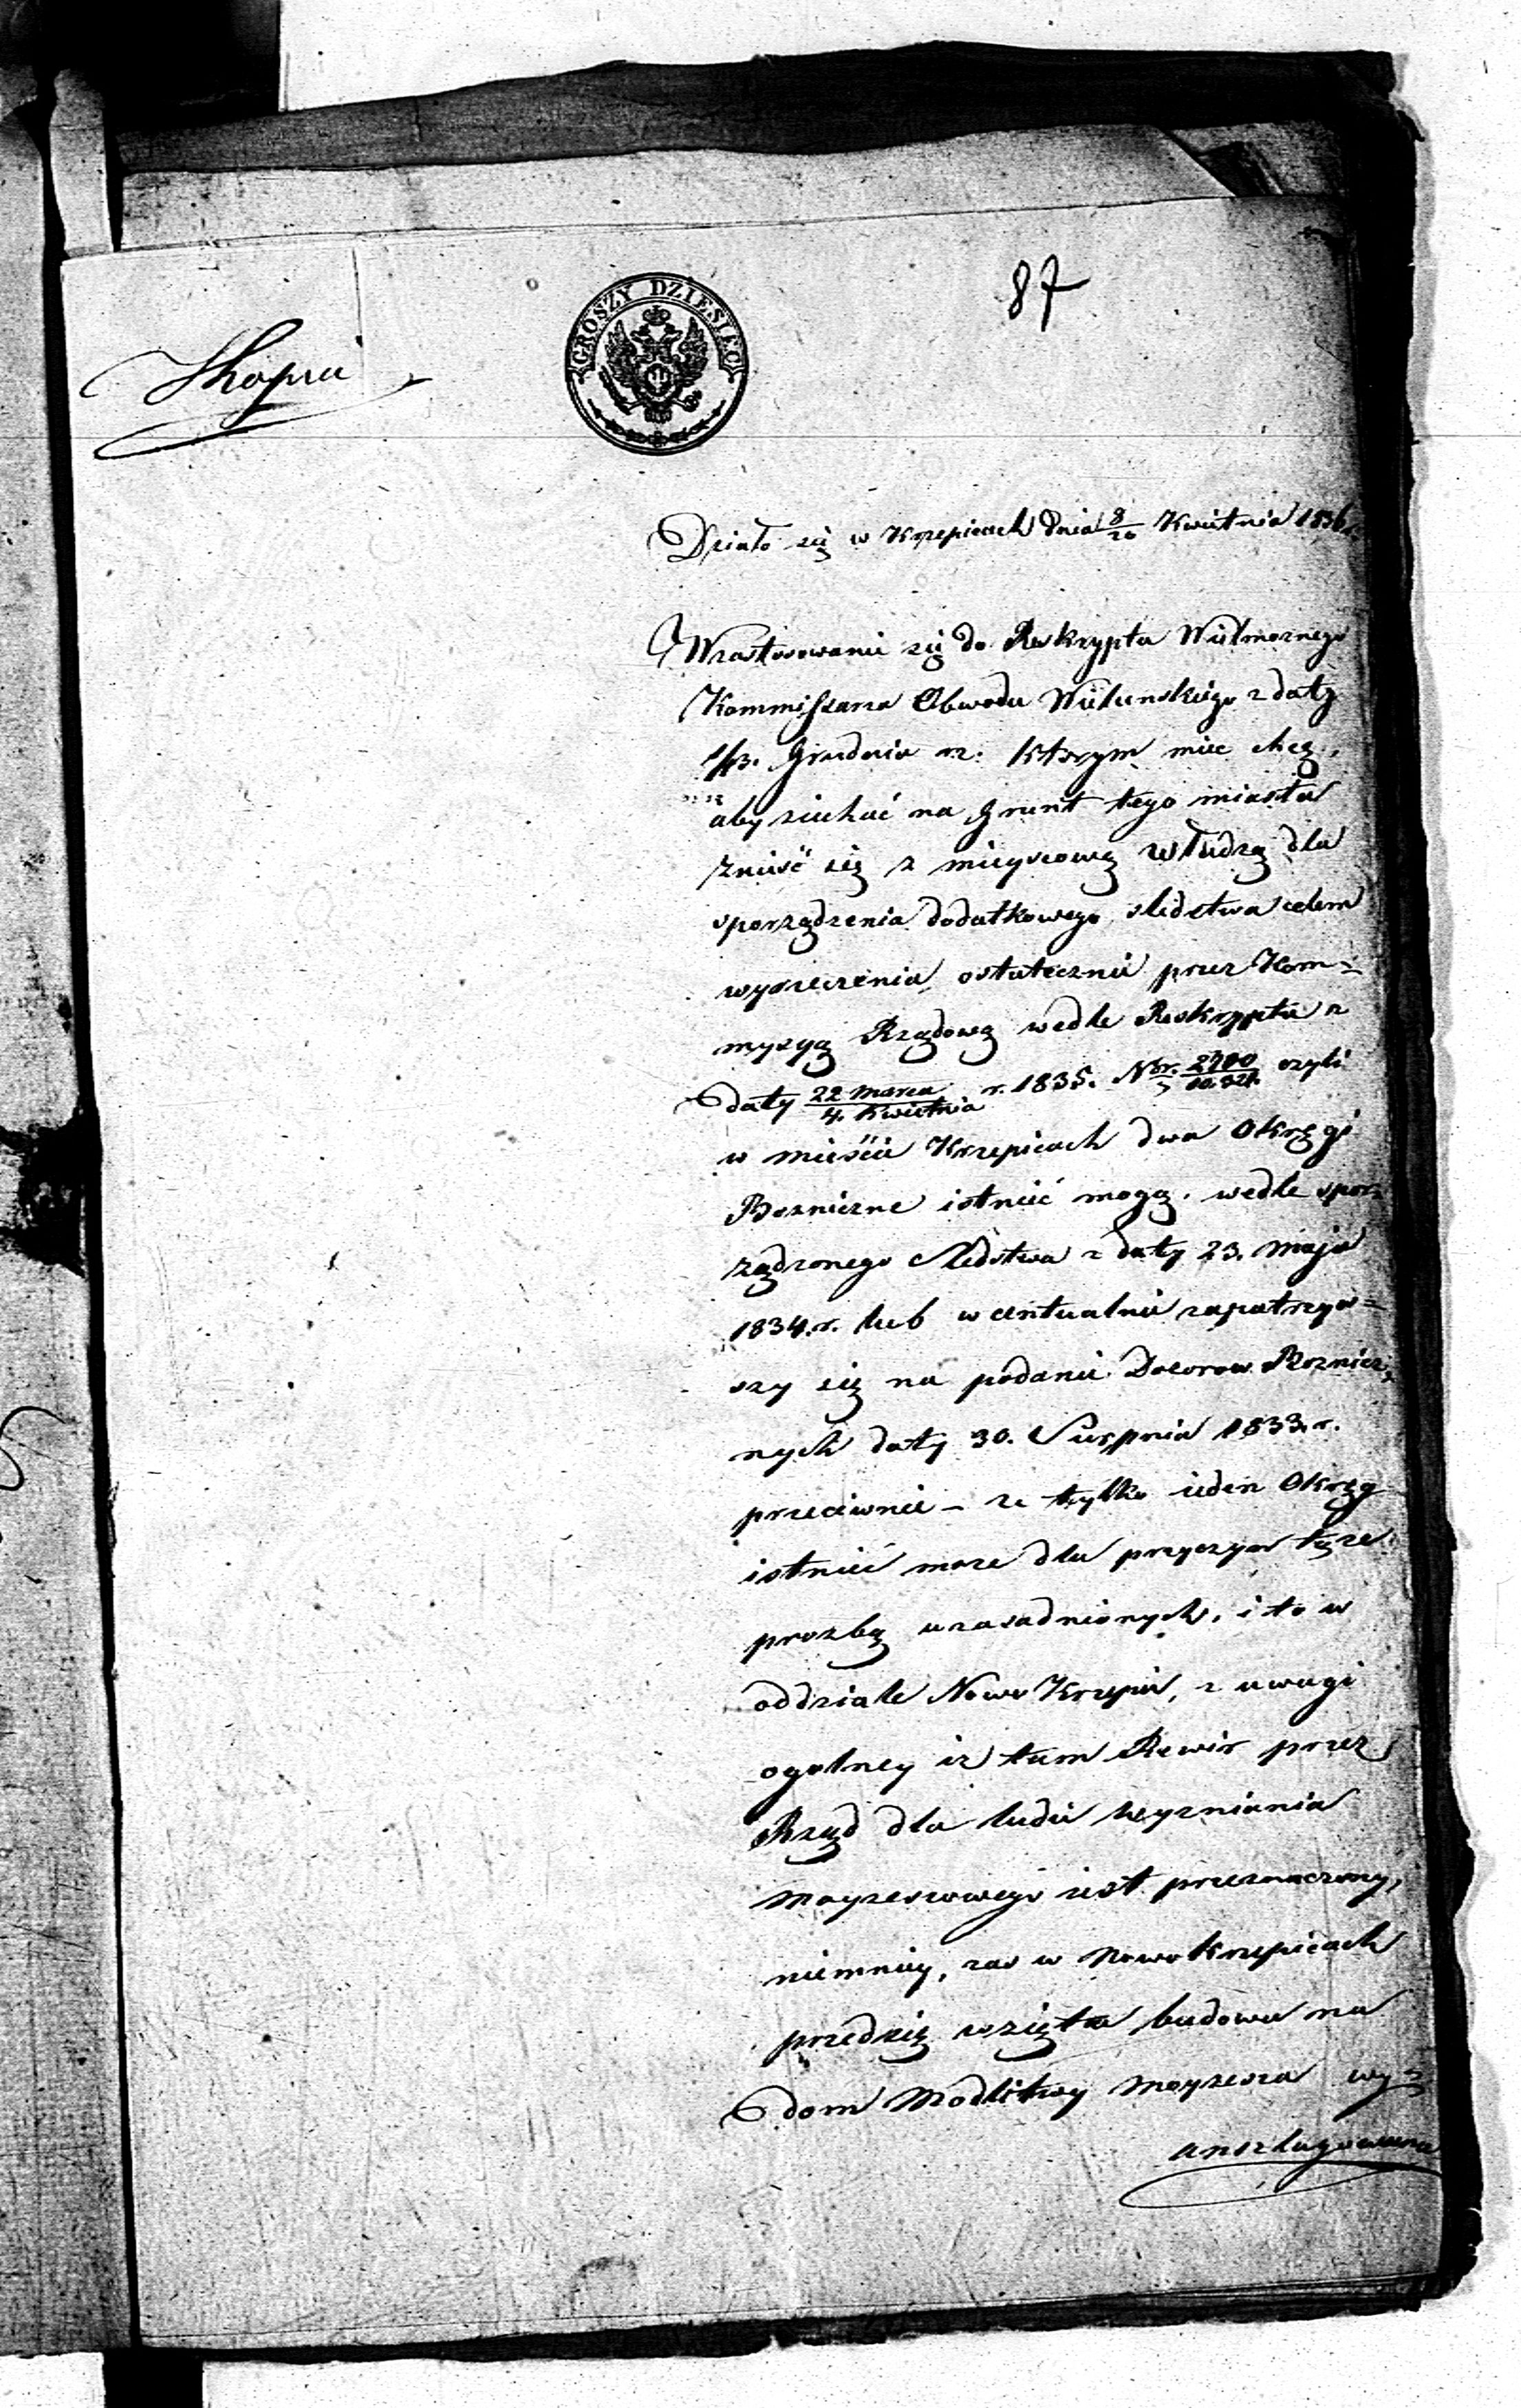 87
GROSZY DZIESIĘĆ
Kopia
Działo się w Krzepicach dnia 8/20 Kwietnia 1836
W zastosowaniu się do Reskryptu Wielmoznego
Kommissarza Obwodu Wieluńskiego z daty
1/13. Grudnia r.z. którym miec chcę,
aby ziechać na Grunt tego miasta
znieść się z mieyscową władzą dla
sporządzenia dodatkowego sledstwa celem
wyrzeczenia ostatecznie przez Kom=
myssyą Rządową wedle Reskryptu z
daty 22 Marca / 4. Kwietnia r. 1835. Nr. 2700 / 10.321. czyli
w mieście Krzepicach dwa Okręgi
Boznicze istnieć mogą, wedle sporz=
ządzonego Sledstwa z daty 23. Maja
1834. r. lub wentualnie zapatrzyw=
szy się na podanie Dozorow Boznicz=
nych daty 30. Sierpnia 1833. r.
przeciwnie – ze tylko ieden Okręg
istnieć moze dla przyczyn tęze
prozbą uzasadnionych, i to w
oddziale Nowo Krzepic, z uwagi
ogolney iz tam Rewir przez
Rząd dla ludu Wyznania
Mayzeszowego iest przeznaczony,
niemniey, zas w Nowokrzepicach
przedsię wzięta budowa na
dom Modlitwy Mayzesza wy=
anszlagowana